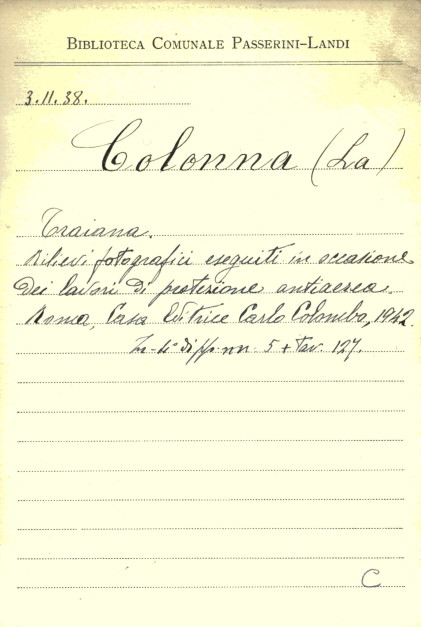 BIBLIOTECA COMUNALE PASSERINI-LANDI
3.11.38.
Colonna (La)
Traiana.
Rilievi fotografici eseguiti in occasione
dei lavori di protezione antiaerea.
Roma, Casa Editrice Carlo Colombo, 1942.
In-4° di pp. nn. 5 + tav. 127.
C